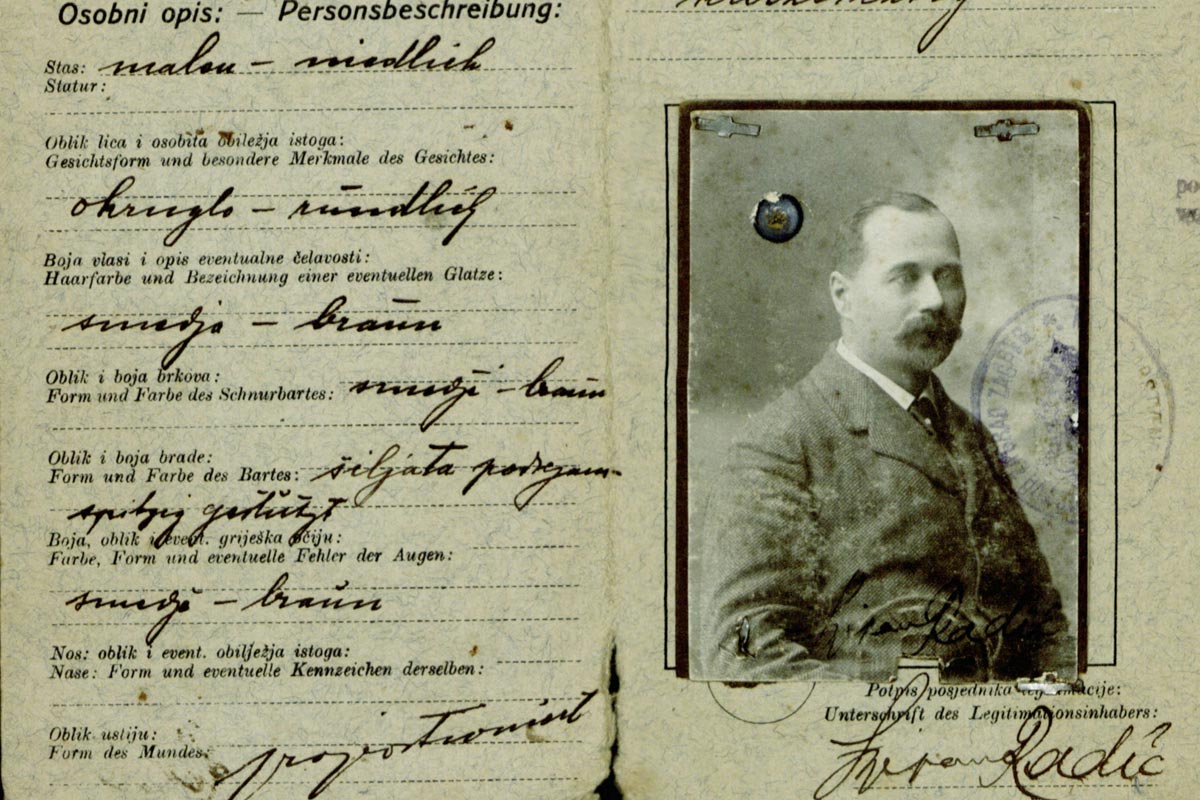 Osobni opis: — Personsbeschreibung:
Stas: malen – niedlich
Statur:
Oblik lica i osobita obilježja istoga:
Gesichtsform und besondere Merkmale des Gesichtes:
okruglo – rundlich
Boja vlasi i opis eventualne čelavosti:
Haarfarbe und Bezeichnung einer eventuellen Glatze:
smedja – braun
Oblik i boja brkova:
Form und Farbe des Schnurbartes: smedji – braun
Oblik i boja brade:
Form und Farbe des Bartes: šiljata
spitzig gestutzt
Boja, oblik i event. griješka očiju:
Farbe, Form und eventuelle Fehler der Augen:
smedje – braun
Nos: oblik i event. obilježja istoga:
Nase: Form und eventuelle Kennzeichen derselben:
Oblik ustiju:
Form des Mundes:
proportioniert
GRAD ZAGREB
Stjepan Radić
Potpis posjednika legitimacije:
Unterschrift des Legitimationsinhabers:
Stjepan Radić